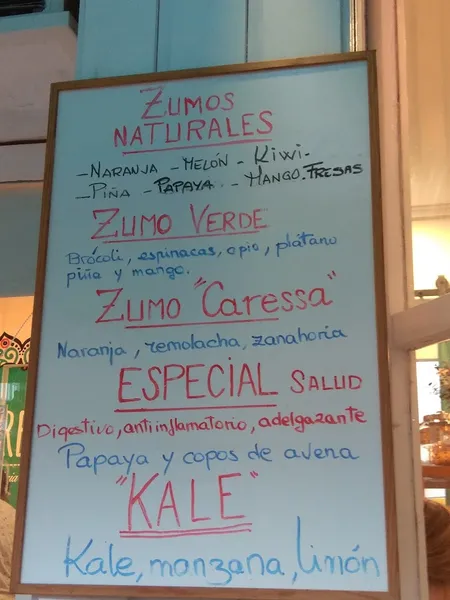 ZUMOS
NATURALES
-NARANJA -MELÓN - KIWI-
-PIÑA -PAPAYA - MANGO. FRESAS
ZUMO VERDE
Brócoli, espinacas, apio, plátano
piña y mango.
ZUMO "CARESSA"
Naranja, remolacha, zanahoria
ESPECIAL SALUD
Digestivo, antiinflamatorio, adelgazante
Papaya y copos de avena
"KALE"
Kale, manzana, limón